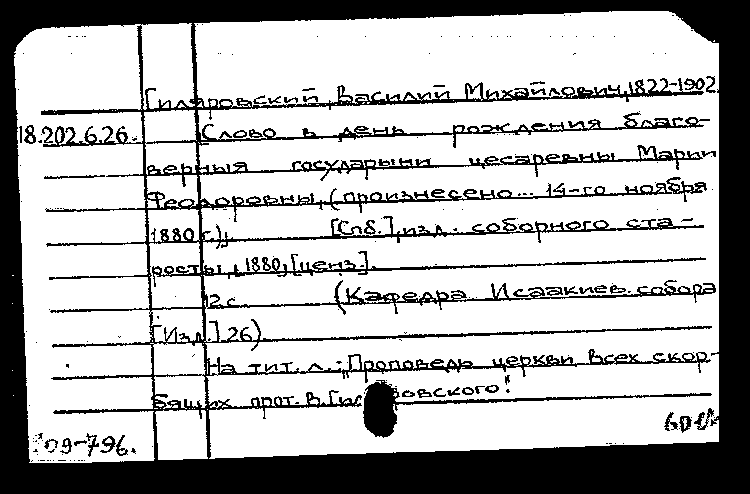 Гиляровский, Василий Михайлович, 1822-1902
18.202.6.26. Слово в день рождения благо-
верныя государыни цесаревны Марии
Феодоровны, (произнесено... 14-го ноября
1880 г.), [Спб.], изд. соборного ста-
росты, 1880, [ценз.].
12 с. (Кафедра Исаакиев. собора
[Изд.] 26)
На тит. л.: „Проповедь церкви Всех скор-
бящих прот. В. Гиляровского".
09-796.